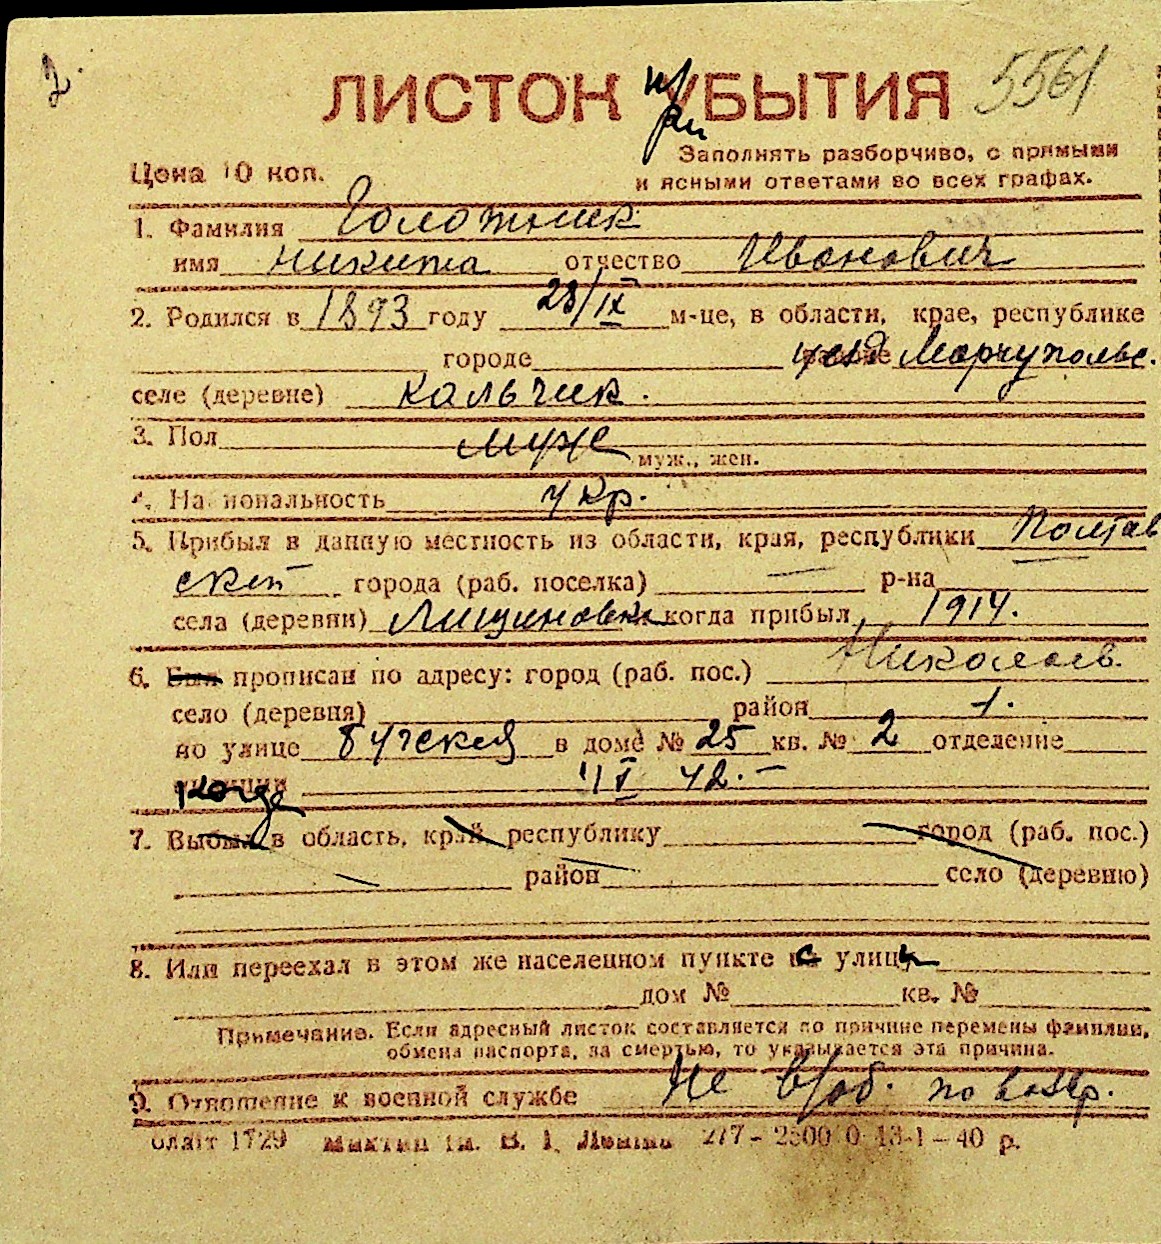 ЛИСТОК УБЫТИЯ 5561
при
Цена 10 коп.
Заполнять разборчиво, с прямыми
и ясными ответами во всех графах.
1. Фамилия Голотник
имя Никита отчество Иванович
2. Родился в 1893 году 28/IX м-це, в области, крае, республике
городе Мариупольс.
селе (деревне) Кальчик.
3. Пол муж
муж., жен.
4. Национальность укр.
5. Прибыл в данную местность из области, края, республики Полтав
ской города (раб. поселка) — р-на
села (деревни) Лищиновка когда прибыл 1914.
6. Был прописан по адресу: город (раб. пос.) Николаев.
село (деревня) район 1.
по улице Бугская в доме № 25 кв. № 2 отделение
когда 42. —
7. Выбыл в область, край республику город (раб. пос.)
район село (деревню)
8. Или переехал в этом же населенном пункте с улицы
дом № кв. №
Примечание. Если адресный листок составляется по причине перемены фамилии,
обмена паспорта, за смертью, то указывается эта причина.
9. Отношение к военной службе Не в/об. по возр.
1729 В. І. 277 – 2500 0 13-1 – 40 р.